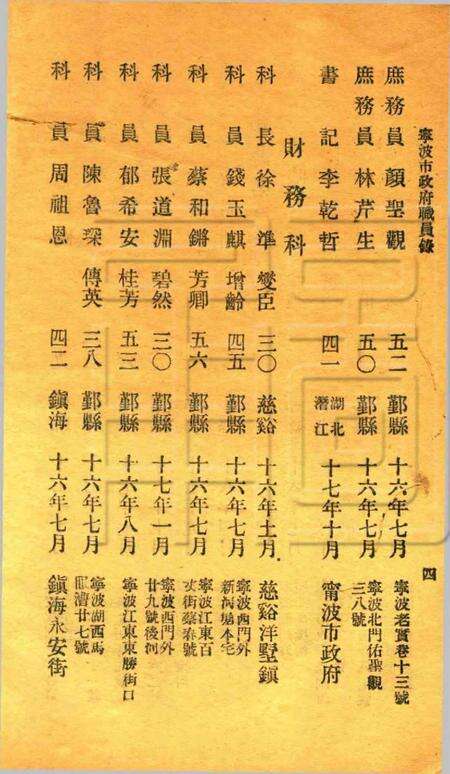 寧波市政府職員錄
四
庶務員 顏聖觀 五二 鄞縣 十六年七月 寧波老實巷十三號
庶務員 林芹生 五〇 鄞縣 十六年七月 寧波北門佑聖觀三八號
書記 李乾哲 四一 湖北潛江 十七年十月 甯波市政府
財務科
科長 徐準 燮臣 三〇 慈谿 十六年十一月 慈谿洋墅鎮
科員 錢玉麒 增齡 四五 鄞縣 十六年七月 寧波西門外新河塘本宅
科員 蔡和鏘 芳卿 五六 鄞縣 十六年七月 寧波江東百丈街蔡春號
科員 張道淵 碧然 三〇 鄞縣 十七年一月 寧波西門外廿九號後河
科員 郁希安 桂芳 五三 鄞縣 十六年八月 寧波江東東勝街口
科員 陳魯琛 傳英 三八 鄞縣 十六年七月 寧波湖西馬眼漕廿七號
科員 周祖恩 四二 鎮海 十六年七月 鎮海永安街